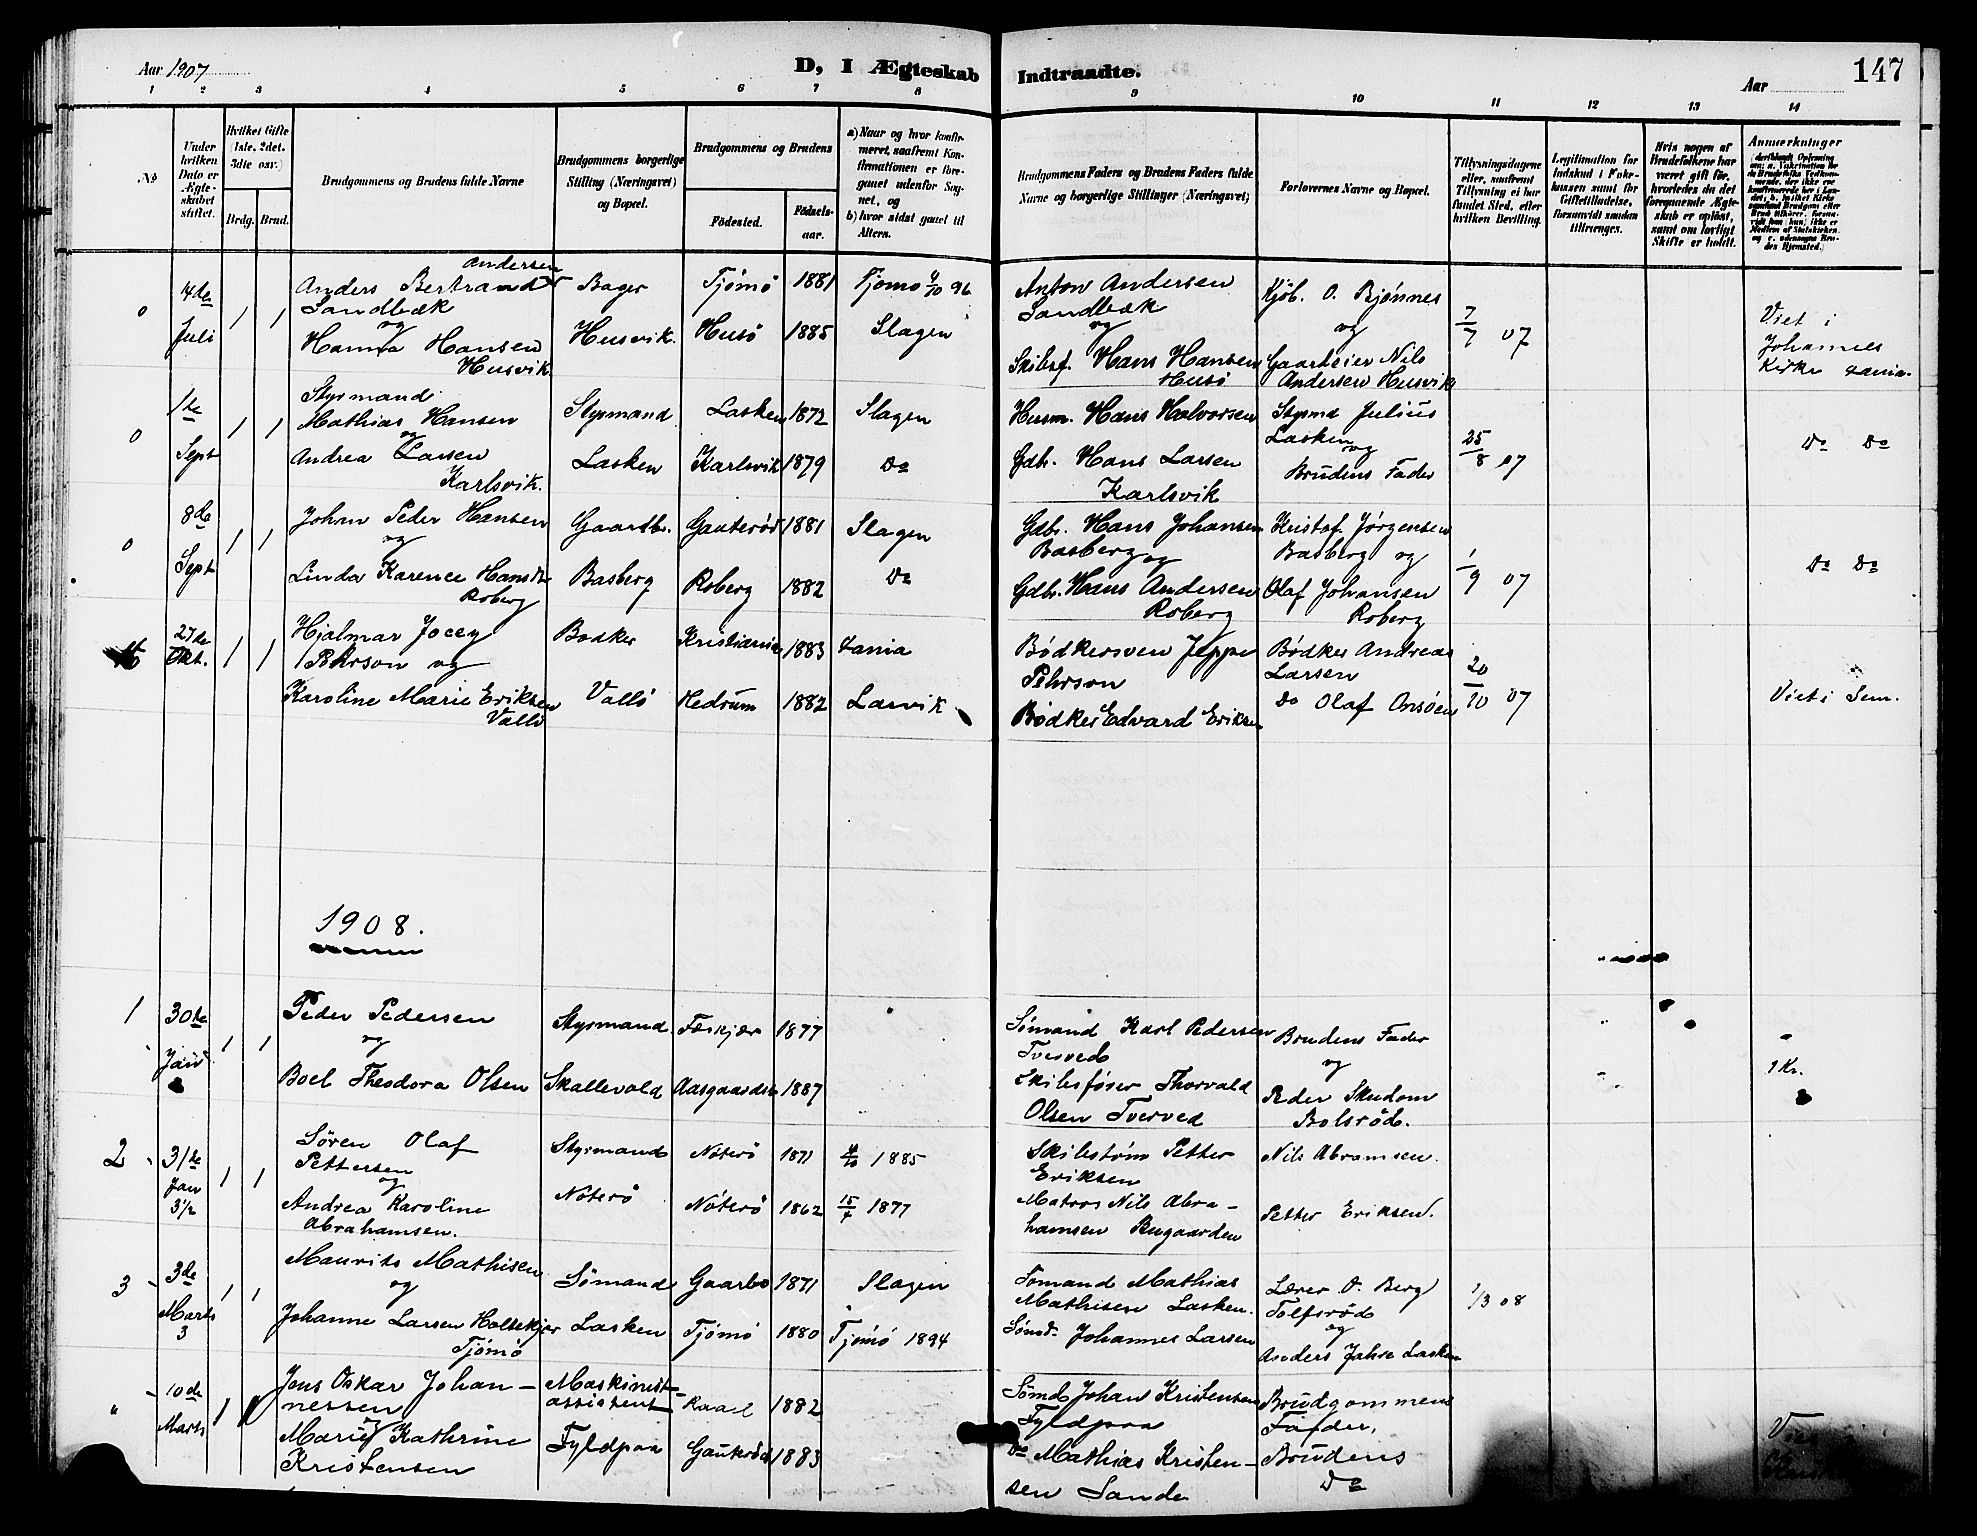 Aar 1907
D, I Ægteskab Indtraadte.
Aar
147
1 2 3 4 5 6 7 8 9 10 11 12 13 14
No
Under
hvilken
Dato er
Ægte-
skabet
stiftet.
Hvilket Gifte
(1ste, 2det,
3die osv.)
Brdg. Brud.
Brudgommens og Brudens fulde Navne
Brudgommens borgerlige
Stilling (Næringsvei)
og Bopæl.
Brudgommens og Brudens
Fødested.
Fødsels-
aar.
a) Naar og hvor konfir-
meret, saafremt Kon-
firmationen er fore-
gaaet udenfor Sog-
net, og
b) hvor sidst gaaet til
Alters.
Brudgommens Faders og Brudens Faders fulde
Navne og borgerlige Stillinger (Næringsvei)
Forlovernes Navne og Bopæl.
Tillysningsdagene
eller, saafremt
Tillysning ei har
fundet Sted, efter
hvilken Bevilling.
Legitimation for
Indskud i Enke-
kassen samt for
Giftetilladelse,
forsaavidt saadan
tiltrænges.
Hvis nogen af
Brudefolkene har
været gift før,
hvorledes da det
foregaaende Ægte-
skab er opløst,
samt om lovligt
Skifte er holdt.
Anmærkninger
0
14de
Juli
1 1
Andersen
Anders Bertrand
Sandbæk
og
Hanna Hansen
Husvik
Bager
Husvik.
Tjømø 1881
Husø 1885
Tjømø 4/10 96
Slagen
Anton Andersen
Sandbæk
og
Skibsf. Hans Hansen
Husø
Kjøb. O. Bjønnes
og
Gaardeier Nils
Andersen Husvik
7/7 07
Viet i
Johannes
Kirke
0
1ste
Sept
1 1
Styrmand
Mathias Hansen
og
Andrea Larsen
Karlsvik.
Styrmand
Lasken
Lasken 1872
Karlsvik 1879
Slagen
Do
Husm. Hans Halvorsen
Gdbr. Hans Larsen
Karlsvik
Styrmd Julius
Lasken og
Brudens Fader
25/8 07
Do Do
0
8de
Sept
1 1
Johan Peder Hansen
og
Linda Karence Hansdtr
Roberg
Gaardbr.
Basberg
Gauterød 1881
Roberg 1882
Slagen
Do
Gdbr. Hans Johansen
Basberg og
Gdbr. Hans Andersen
Roberg
Kristof. Jørgensen
Basberg og
Olaf Johansen
Roberg
1/9 07
Do Do
27de
Okt.
1 1
Hjalmar Jocey
Pehrson og
Karoline Marie Eriksen
Vallø
Bødker
Vallø
Kristiania 1883
Hedrum 1882
Xania
Larvik
Bødkersven Jeppe
Pehrson
Bødker Edvard Eriksen
Bødker Andreas
Larsen
Do Olaf
20/10 07
Viet i Sem.
1908.
1
30te
Jan
1 1
Peder Pedersen
og
Boel Theodora Olsen
Styrmand
Skallevold
Feskjær 1877
Aasgaardstr 1887
Sømand Karl Pedersen
Tverved
Skibsfører Thorvald
Olsen Tverved
Brudens Fader
og
Peder Skudom
Bolsrød.
1 Kr.
2
31te
Jan
31/1
1 1
Søren Olaf
Pettersen
og
Andrea Karoline
Abrahamsen.
Styrmand
Nøterø
Nøterø 1871
Nøterø 1862
1885
15/7 1877
Skibstøm Petter
Eriksen
Matros Nils Abra-
hamsen
Nils Abramsen.
Petter Eriksen.
3
3de
Marts
3
1 1
Maurits Mathisen
og
Johanne Larsen Holtekjær
Tjømø
Sømand
Lasken
Gaarbo 1871
Tjømø 1880
Slagen
Tjømø 1894
Sømand Mathias
Mathisen Lasken.
Sømd. Johannes Larsen
Lærer O. Berg
Tolfsrød
og
Anders Jahre Lasken
1/3 08
"
10de
Marts
1 1
Jens Oskar Johan-
nessen
Marie Kathrine
Kristensen
Maskinist-
assistent
Fyldpaa
Raael 1882
Gauterød 1883
Sømd Johan Kristensen
Fyldpaa
Do Mathias Kristen-
sen Sande
Brudgommens
Fader,
Brudens
Do